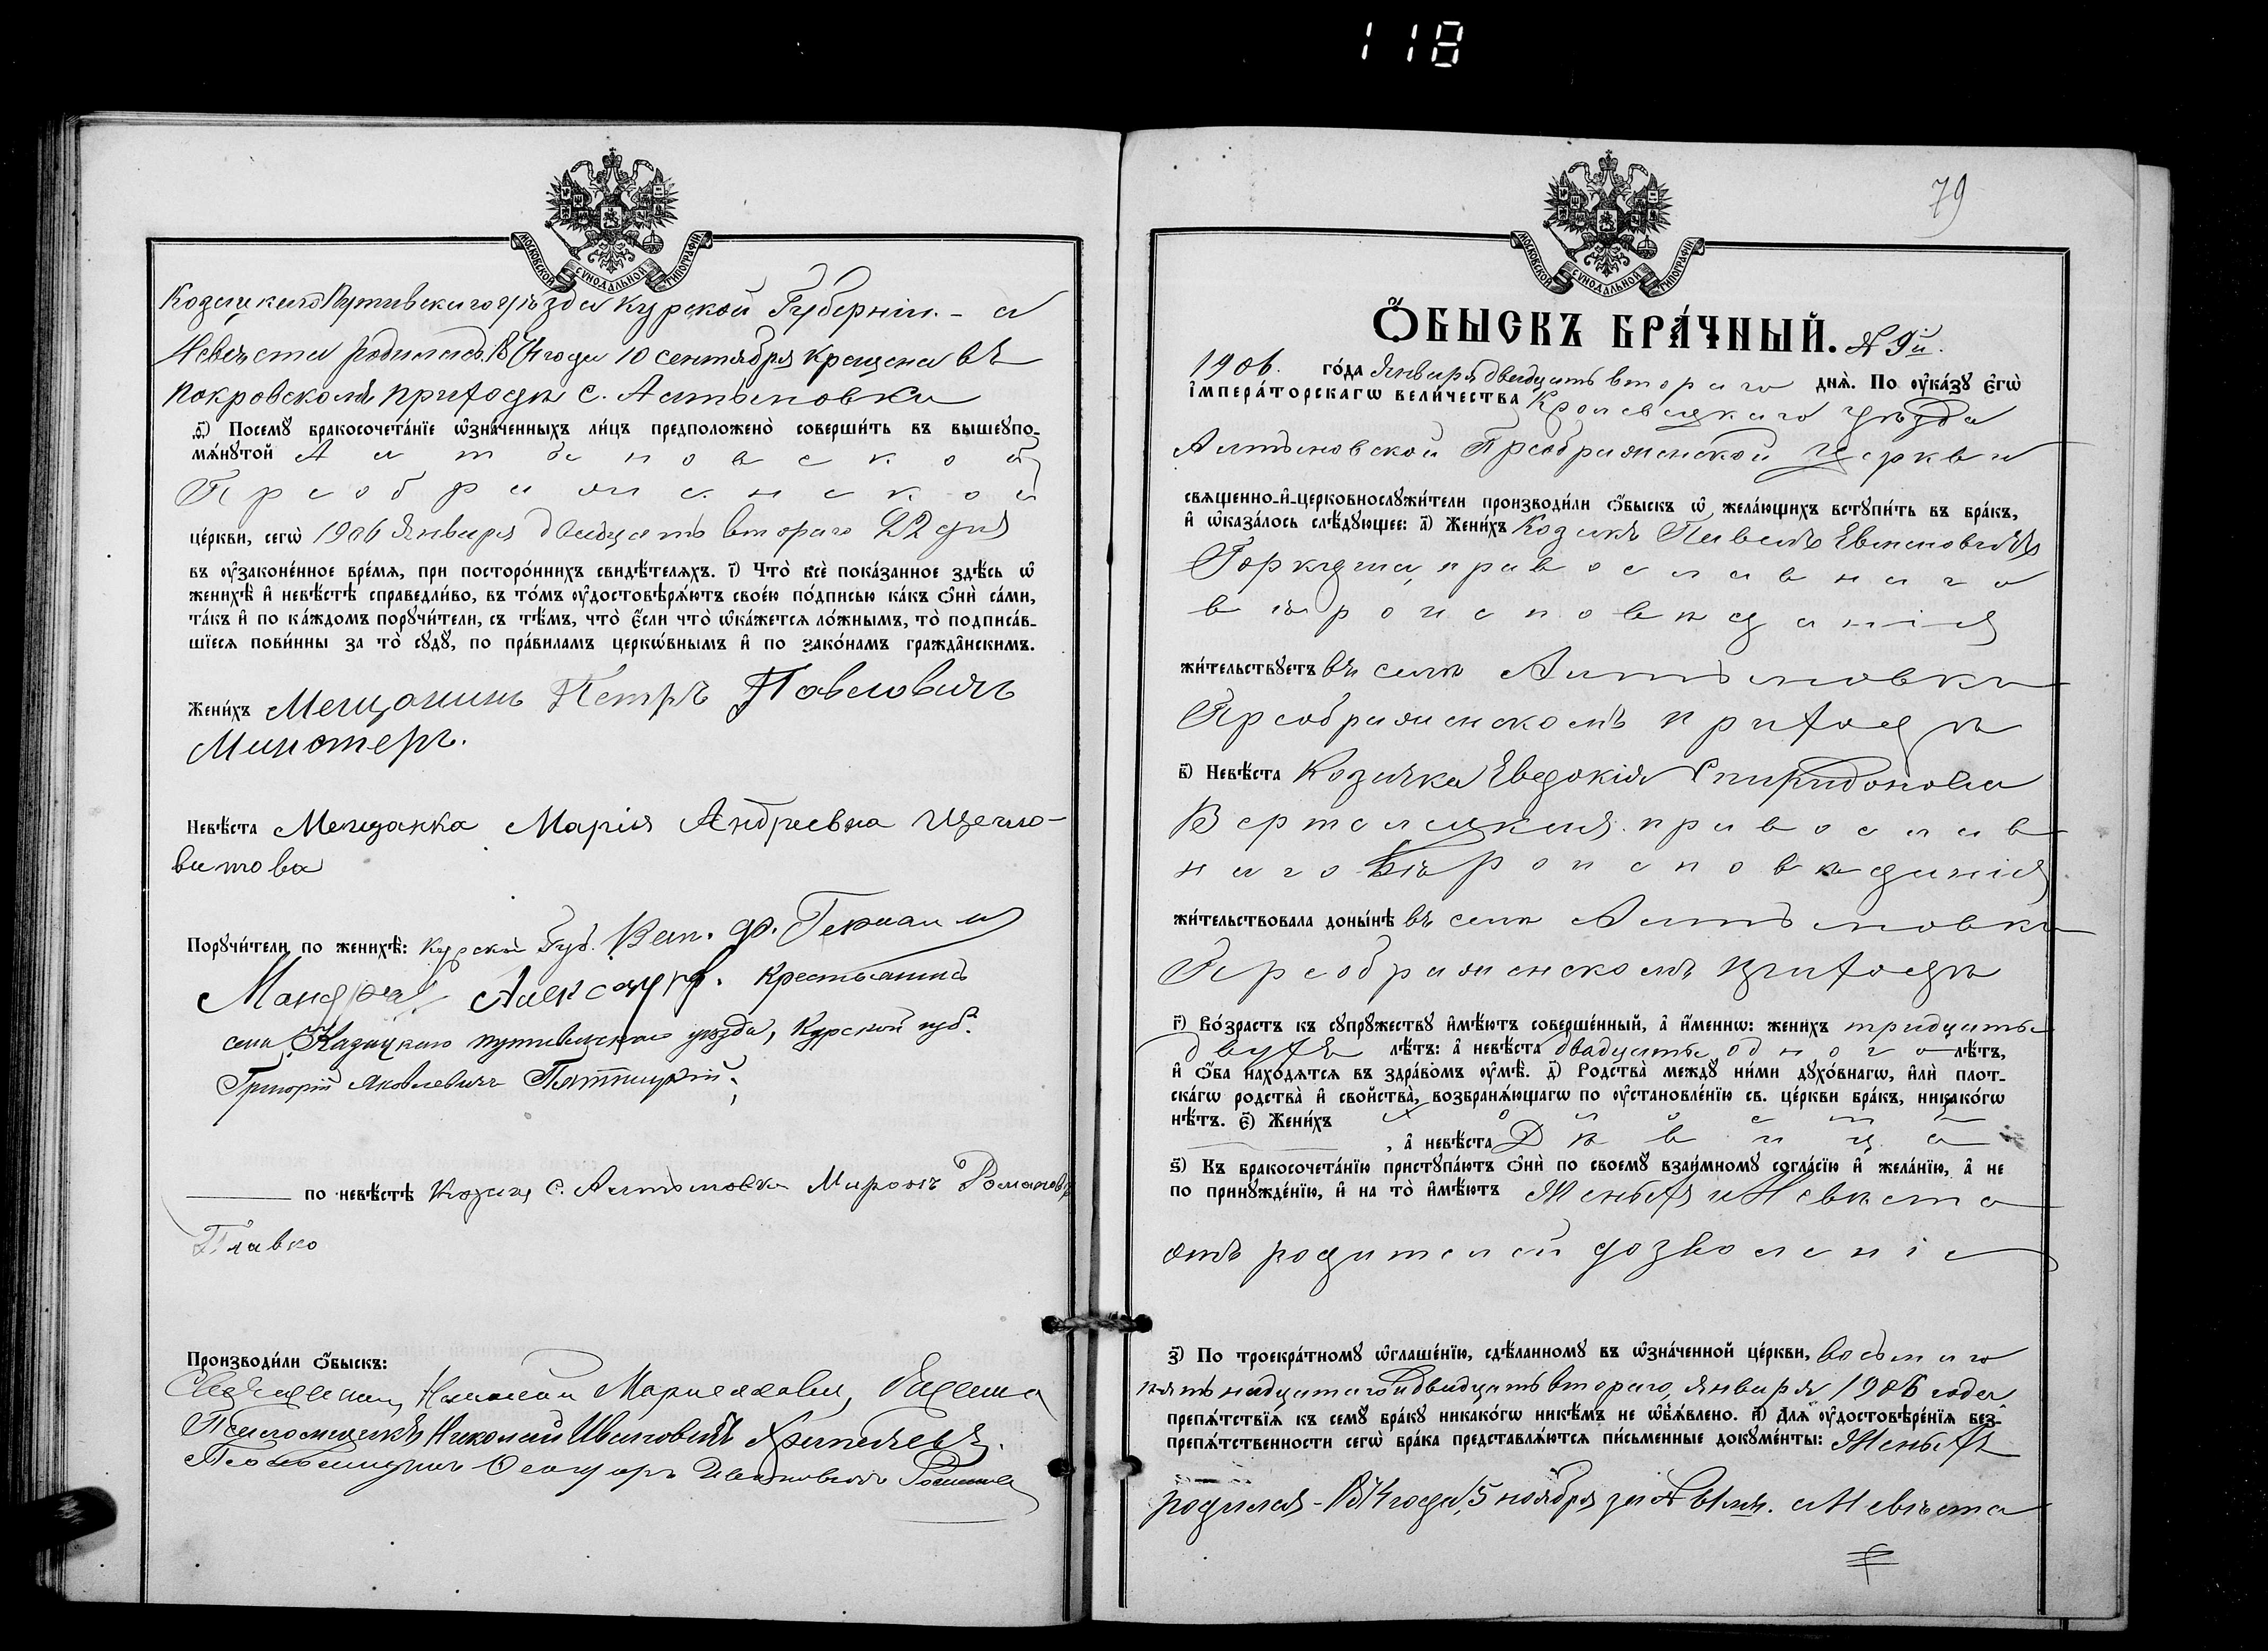 118
МОСКОВСКОЙ СѴНОДАЛЬНОЙ ТИПОГРАФІИ
Козацкаго Путивскаго уѣзда Курской Губерніи. - а
Невѣста родилась 18 года 10 сентября крещена въ
Покровскомъ приходѣ с. Алтыновки
Посемꙋ бракосочета́нїе ѡ҆зна́ченныхъ ли́цъ предположено̀ соверши́ть въ вышеꙋпо-
мѧ́нꙋтой Алтыновской
Преображенской
це́ркви, сегѡ̀ 1906 Января двадцать втораго 22 дня
въ ᲂу҆законе́нное вре́мѧ, при посторо́ннихъ свидѣ́телѧхъ. і҃) Что̀ всѐ пока́занное здѣ́сь ѡ҆
женихѣ̀ и҆ невѣ́стѣ справедли́во, въ то́мъ ᲂу҆достовѣрѧ́ютъ свое́ю по́дписью ка́къ ѻ҆нѝ са́ми,
та́къ и҆ по ка́ждомъ порꙋчи́тели, съ тѣ́мъ, что̀ є҆́сли что̀ ѡ҆ка́жетсѧ ло́жнымъ, то̀ подписа́в-
шїесѧ пови́нны за то̀ сꙋдꙋ̀, по пра́виламъ церкѡ́внымъ и҆ по зако́намъ гражда̑нскимъ.
Жени́хъ Мещанинъ Петръ Павловичъ
Невѣ́ста Мещанка Марія Андреевна Щегло-
витова
Порꙋчи́тели по женихѣ̀: Курской Губ.
Александр. Крестьянинъ
села Казацкаго путивльскаго уѣзда, Курской губ.
Григорій Яковлевичъ Пятницкій;
по невѣ́стѣ Козакъ с. Алтыновки Миронъ Романовъ
Главко
Производи́ли ѻ҆́быскъ:
Священникъ Николай
Псаломщикъ Николай Ивановичъ
Ивановичъ
79
МОСКОВСКОЙ СѴНОДАЛЬНОЙ ТИПОГРАФІИ
Ѻ҆́БЫСКЪ БРА́ЧНЫЙ. № 9й.
1906. го́да Января двадцать втораго днѧ̀. По ᲂу҆ка́зꙋ є҆гѡ̀
і҆мпера́торскагѡ вели́чества Кролевецкаго уѣзда
Алтыновской Преображенской Церкви
свѧщенно-и҆-церковнослꙋжи́тели производи́ли ѻ҆́быскъ ѡ҆ жела́ющихъ встꙋпи́ть въ бра́къ,
и҆ ѡ҆каза́лось слѣ́дꙋющее: а҃) Жени́хъ Козакъ Павелъ
православнаго
вѣроисповѣданія
жи́тельствꙋетъ въ селѣ Алтыновкѣ
Преображенскомъ приходѣ
в҃) Невѣ́ста Козачка Евдокія Спиридонова
православ
наго вѣроисповѣданія
жи́тельствовала доны́нѣ въ селѣ Алтыновкѣ
Преображенскомъ приходѣ
г҃) Во́зрастъ къ сꙋпрꙋжествꙋ и҆мѣ́ютъ соверше́нный, а҆ и҆́меннѡ: жени́хъ тридцать
двухъ лѣ́тъ: а҆ невѣ́ста двадцать одного лѣ́тъ,
и҆ ѻ҆́ба нахо́дѧтсѧ въ здра́вомъ ᲂу҆мѣ̀. д҃) Родства̀ междꙋ ни́ми дꙋхо́внагѡ, и҆лѝ плот-
ска́гѡ родства̀ и҆ сво́йства̀, возбранѧ́ющагѡ по ᲂу҆становле́нїю св. це́ркви бра́къ, никако́гѡ
нѣ́тъ. є҃) Жени́хъ холостъ
, а҆ невѣ́ста Дѣвица
ѕ҃) Къ бракосочета́нїю пристꙋпа́ютъ ѻ҆нѝ по своемꙋ̀ взаи́мномꙋ согла́сїю и҆ жела́нїю, а҆ не
по принꙋжде́нїю, и҆ на то̀ и҆мѣ́ютъ Женихъ и Невѣста
отъ родителей дозволеніе
з҃) По троекра́тномꙋ ѡ҆глаше́нїю, сдѣ́ланномꙋ въ ѡ҆зна́ченной це́ркви, восьмаго
пятнадцатаго и двадцать втораго, января 1906 года
препѧ́тствїѧ къ семꙋ̀ бра́кꙋ никако́гѡ никѣ́мъ не ѡ҆б̾ѧ́влено. и҃) Длѧ̀ ᲂу҆достовѣре́нїѧ без-
препѧ́тственности сегѡ̀ бра́ка представлѧ́ютсѧ пи́сьменные докꙋме́нты: Женихъ
родился - 1874 года, 5 ноября за № а Невѣста